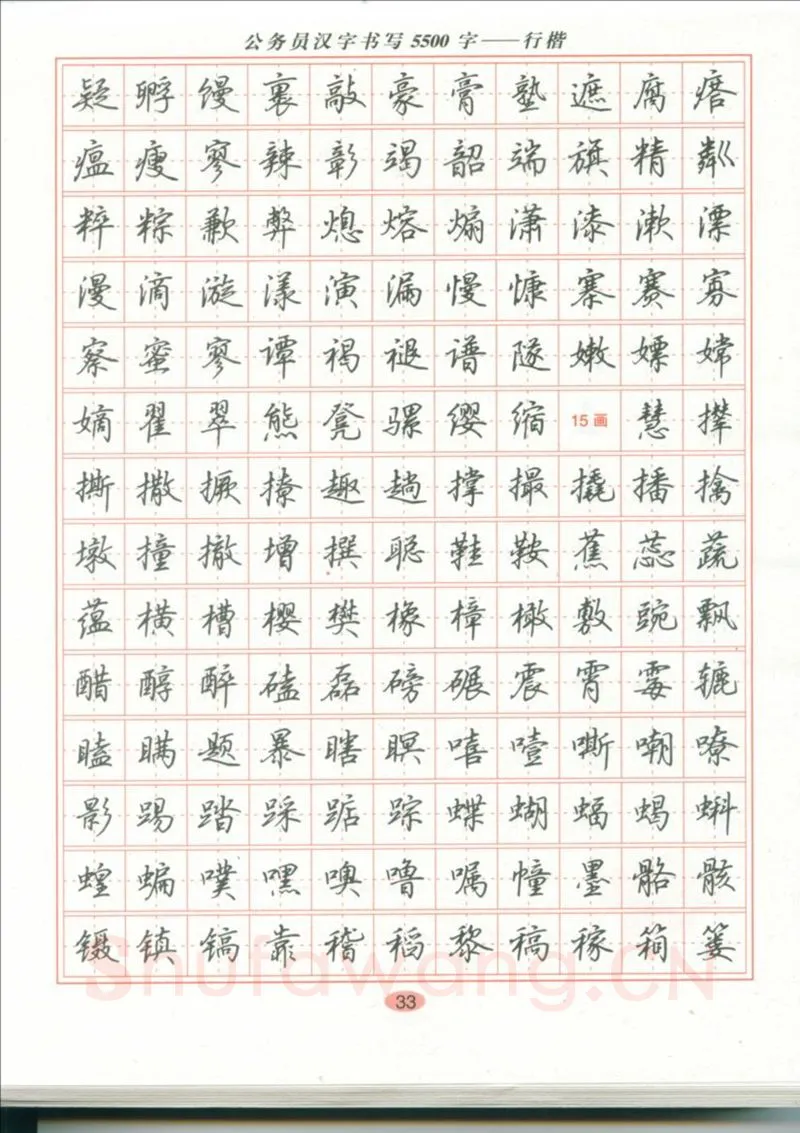 公务员汉字书写5500字——行楷
疑 孵 馒 裹 敲 豪 膏 塾 遮 腐 瘩
瘟 瘦 寥 辣 彰 竭 韶 端 旗 精 粼
粹 粽 歉 弊 熄 熔 煽 潇 漆 漱 漂
漫 滴 漩 漾 演 漏 慢 慷 寨 赛 寡
察 蜜 寥 谭 褐 褪 谱 隧 嫩 嫖 嫦
嫡 翟 翠 熊 凳 骡 缨 缩 15画 慧 撵
撕 撒 撅 撩 趣 趟 撑 撮 撬 播 擒
墩 撞 撤 增 撰 聪 鞋 鞍 蕉 蕊 蔬
蕴 横 槽 樱 樊 橡 樟 橄 敷 豌 飘
醋 醇 醉 磕 磊 磅 碾 震 霄 霉 辘
瞌 瞒 题 暴 瞎 瞑 嘻 噎 嘶 嘲 嘹
影 踢 踏 踩 踞 踪 蝶 蝴 蝠 蝎 蝌
蝗 蝙 噗 嘿 噢 噜 嘱 幢 墨 骼 骸
镊 镇 镐 靠 稽 稻 黎 稿 稼 箱 篓
33
Shufawang.CN